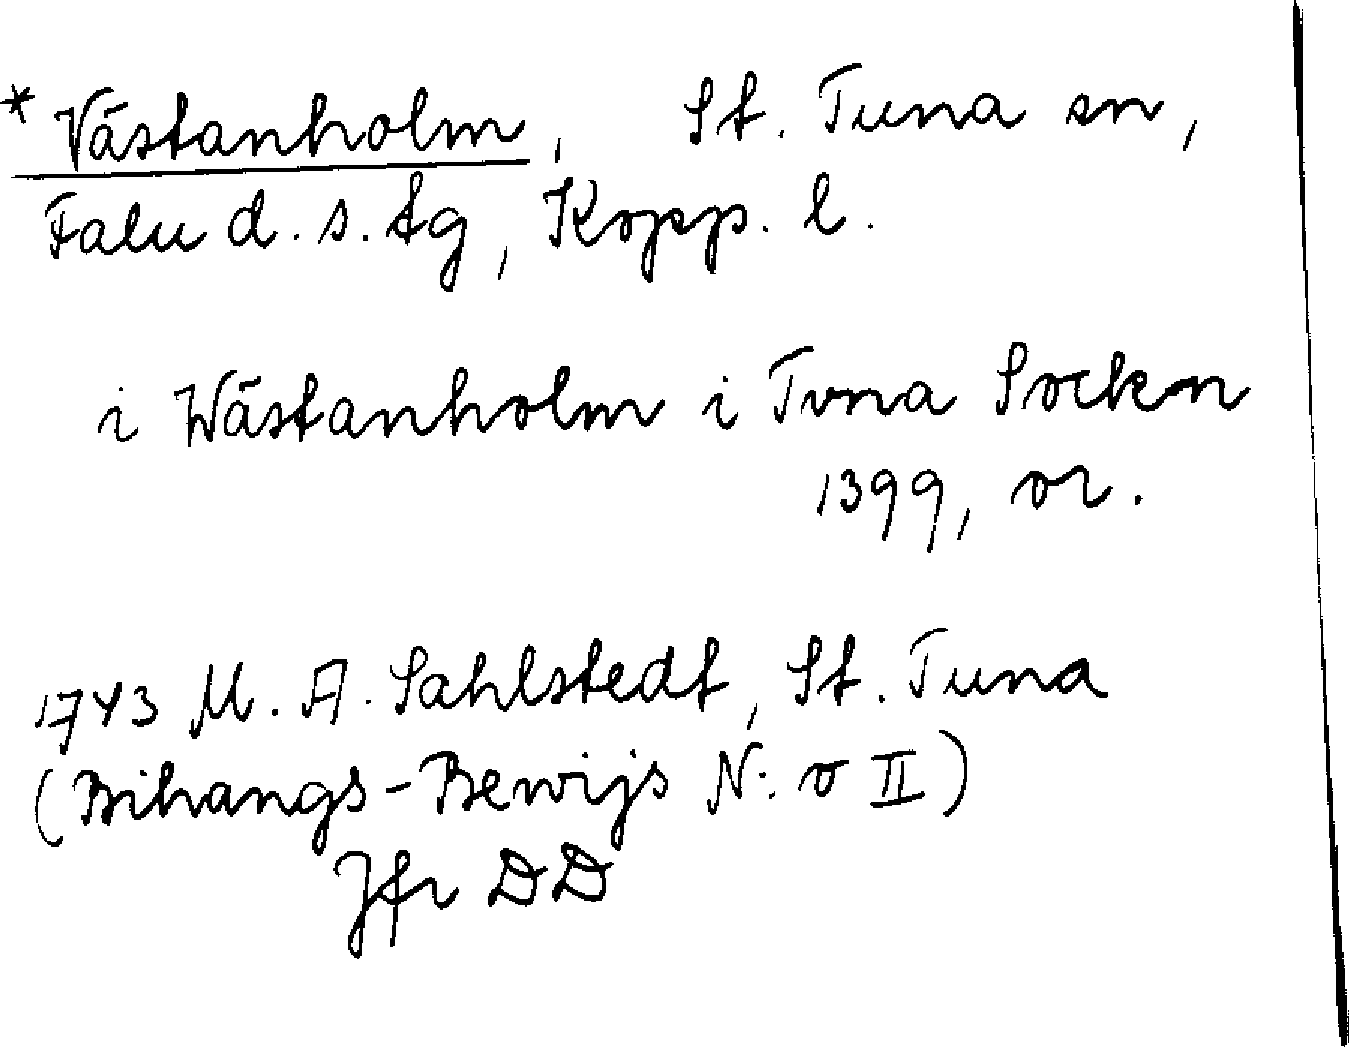 * Västanholm, St. Tuna sn,
Falu d. s. tg, Kopp. l.
i Wästanholm i Tvna Socken
1399, or.
1743 M. A. Sahlstedt, St. Tuna
(Bihangs-Bewijs N:o II)
Jfr DD